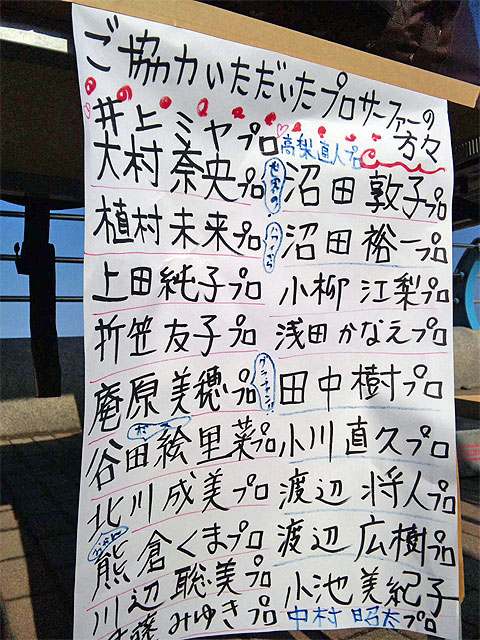 ご協力いただいたプロサーファーの
方々
井上ミヤプロ
大村奈央プロ
植村未来プロ
上田純子プロ
折笠友子プロ
庵原美穂プロ
谷田絵里菜プロ
北川成美プロ
熊倉くまプロ
川辺聡美プロ
みゆきプロ
高梨直人プロ
沼田敦子プロ
沼田裕一プロ
小柳江梨プロ
浅田かなえプロ
グランチャン!!
田中樹プロ
小川直久プロ
渡辺将人プロ
渡辺広樹プロ
小池美紀子
中村昭太プロ